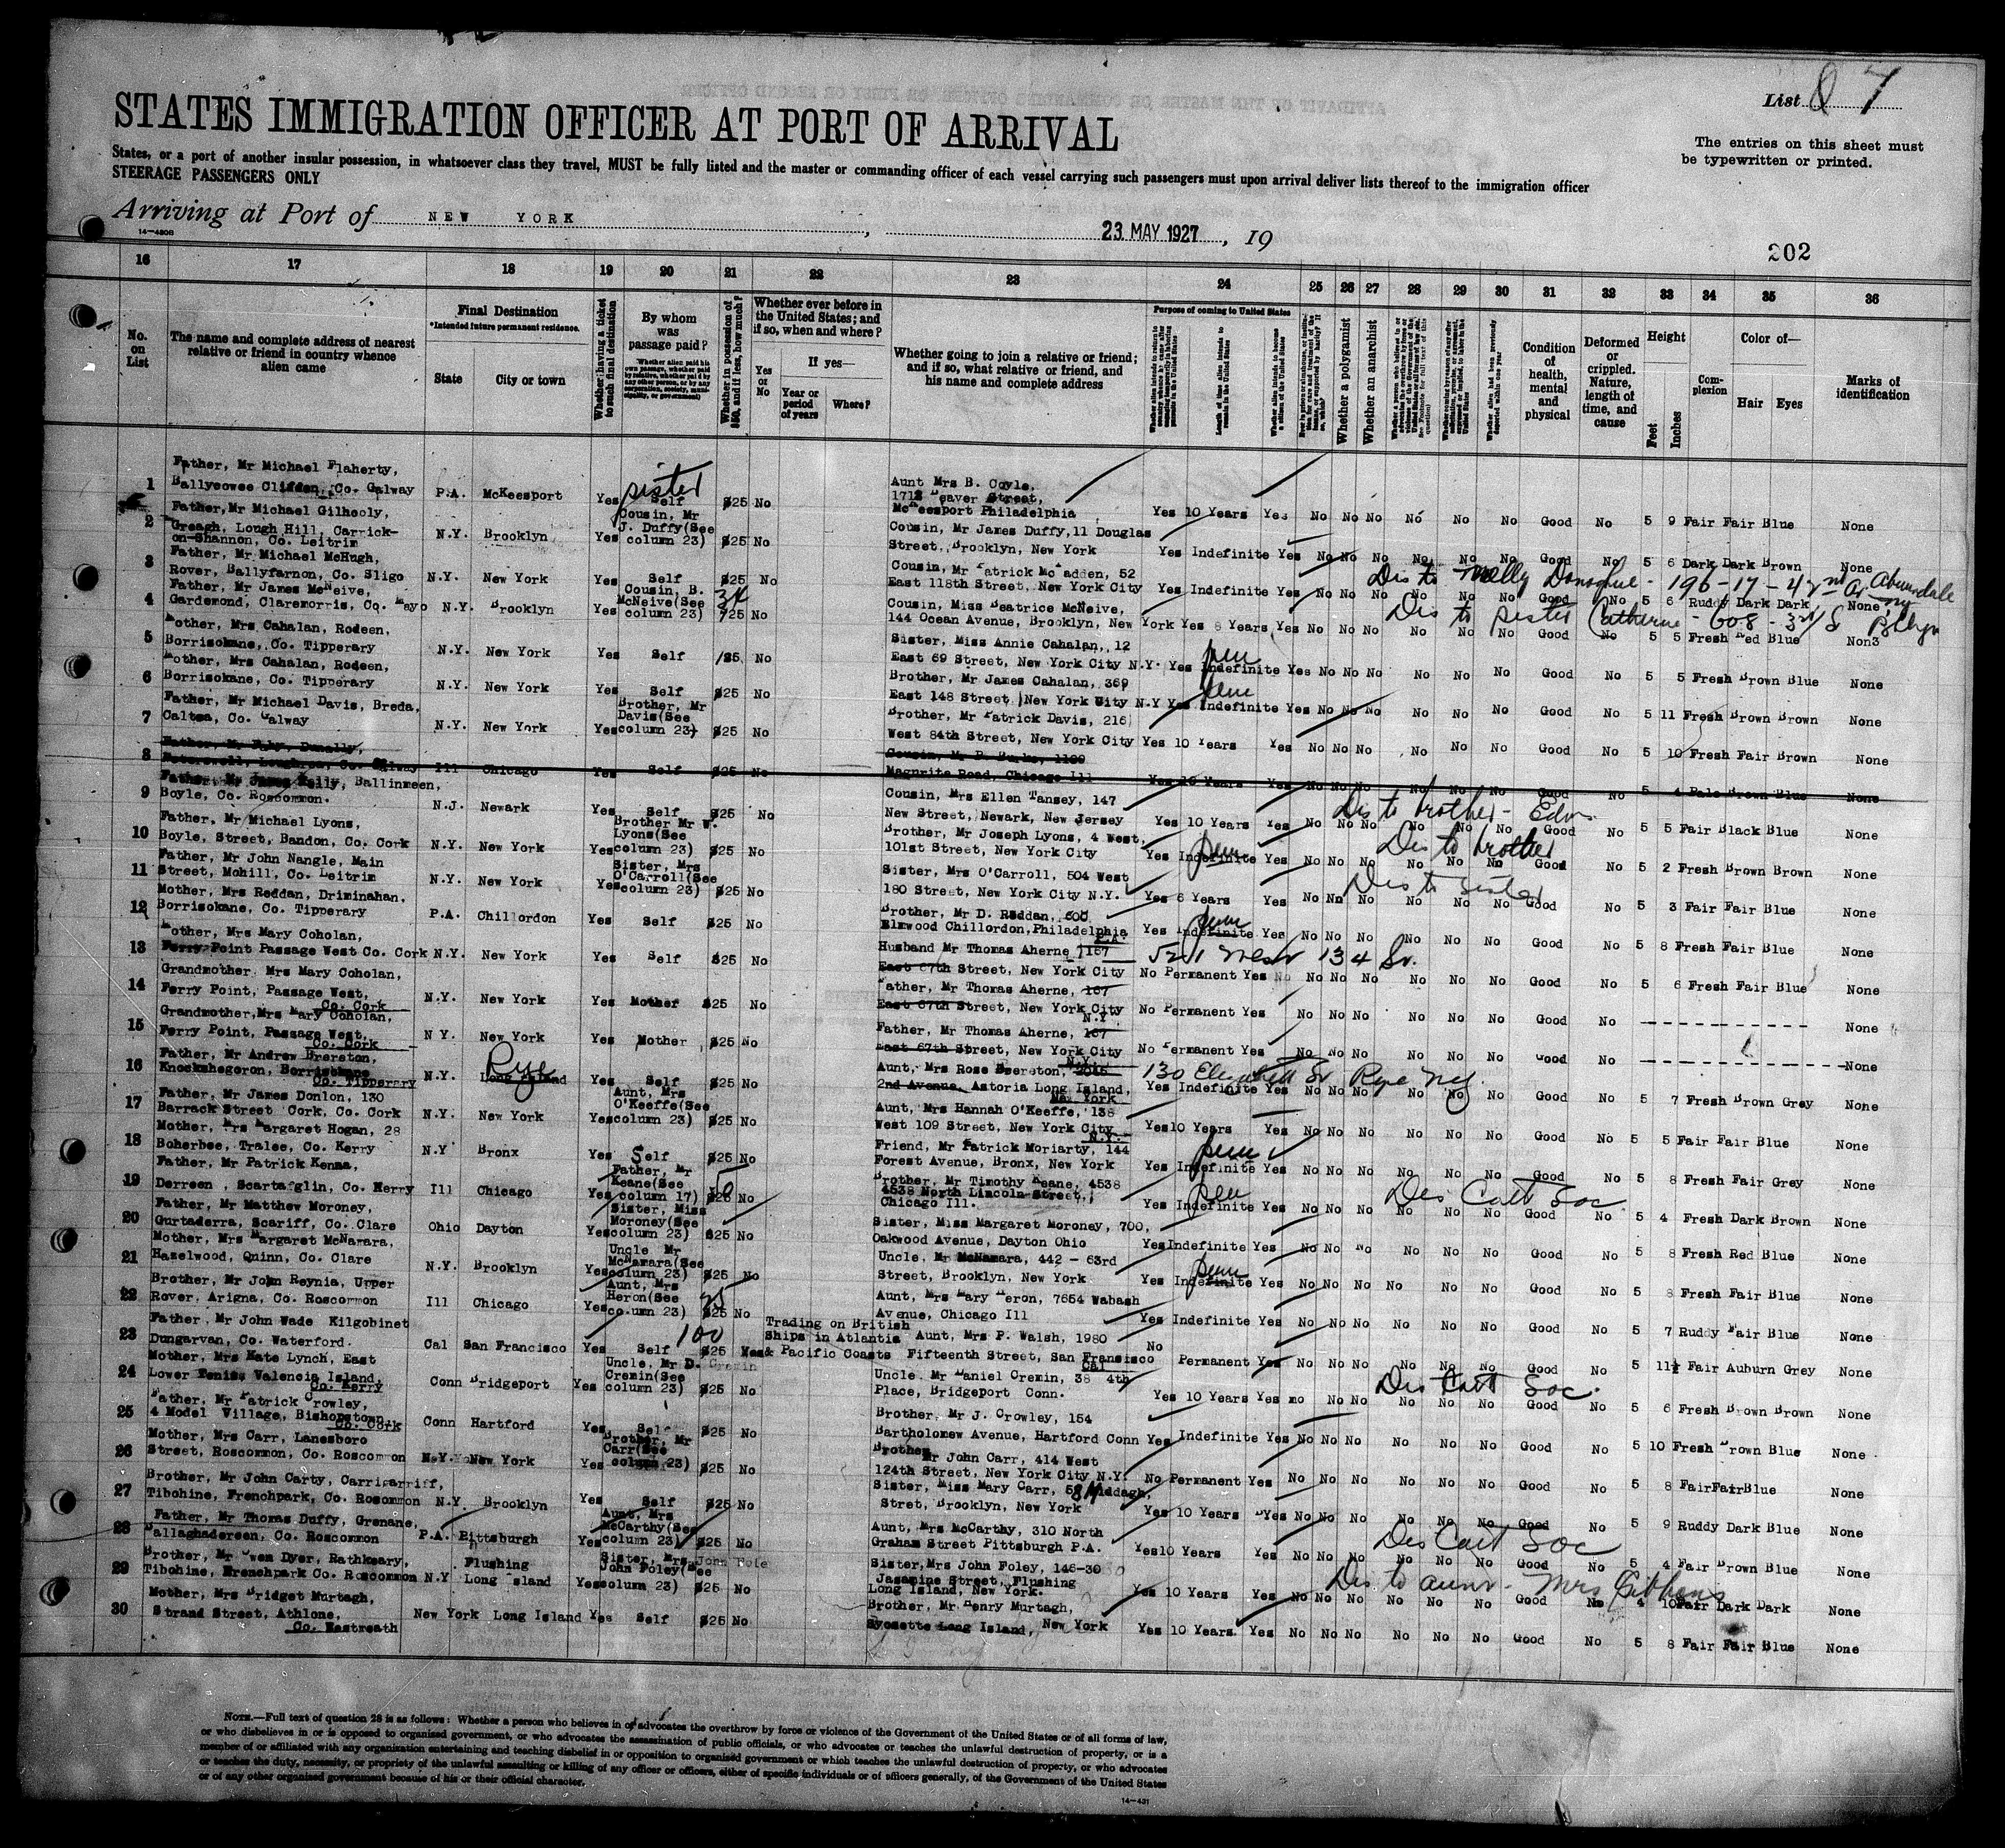 List 87
STATES IMMIGRATION OFFICER AT PORT OF ARRIVAL
The entries on this sheet must
be typewritten or printed.
States, or a port of another insular possession, in whatsoever class they travel, MUST be fully listed and the master or commanding officer of each vessel carrying such passengers must upon arrival deliver lists thereof to the immigration officer
STEERAGE PASSENGERS ONLY
Arriving at Port of NEW YORK, 23 MAY 1927, 19
14-4808
202
16 17 18 19 20 21 22 23 24 25 26 27 28 29 30 31 32 33 34 35 36
No. on List
The name and complete address of nearest relative or friend in country whence alien came
Final Destination
*Intended future permanent residence.
State City or town
Whether having a ticket to such final destination
By whom was passage paid?
Whether in possession of $50, and if less, how much?
Whether ever before in the United States; and if so, when and where?
Yes or No
If yes—
Year or period of years
Where?
Whether going to join a relative or friend; and if so, what relative or friend, and his name and complete address
Purpose of coming to United States
Length of time alien intends to remain in the United States
Whether a polygamist
Whether an anarchist
Condition of health, mental and physical
Deformed or crippled. Nature, length of time, and cause
Height
Feet Inches
Complexion
Color of—
Hair Eyes
Marks of identification
1 Father, Mr Michael Flaherty,
Ballycowee Clifden, Co. Galway P.A. McKeesport Yes sister Self $25 No Aunt Mrs B. Coyle,
Street,
McKeesport Philadelphia Yes 10 Years Yes No No No No No No Good No 5 9 Fair Fair Blue None
2 Father, Mr Michael Gilhooly,
Greagh, Lough Hill, Carrick-
on-Shannon, Co. Leitrim N.Y. Brooklyn Yes Cousin, Mr J. Duffy(See column 23) $25 No Cousin, Mr James Duffy, 11 Douglas
Street, Brooklyn, New York Yes Indefinite Yes No No No No No No Good No 5 6 Dark Dark Brown None
3 Father, Mr Michael McHugh,
Rover, Ballyfarnon, Co. Sligo N.Y. New York Yes Self $25 No Cousin, Mr Patrick McPadden, 52
East 118th Street, New York City Yes Indefinite Yes No No No No No No Good No 5 6 Ruddy Dark Dark None
Dis to Molly Donoghue - 196-17-42nd Av
4 Father, Mr James McNeive,
Gardemond, Claremorris, Co. Mayo N.Y. Brooklyn Yes Cousin, B. McNeive(See column 23) 34 25 No Cousin, Miss Beatrice McNeive,
144 Ocean Avenue, Brooklyn, New York Yes 8 Years Yes No No No No No No Good No 5 5 Fresh Red Blue Non3
Dis to sister Catherine - 608 - 3rd St Bklyn
5 Mother, Mrs Cahalan, Rodeen,
Borrisokane, Co. Tipperary N.Y. New York Yes Self $25 No Sister, Miss Annie Cahalan, 12
East 69 Street, New York City N.Y. Yes Indefinite Yes No No No No No No Good No 5 5 Fresh Brown Blue None
6 Mother, Mrs Cahalan, Rodeen,
Borrisokane, Co. Tipperary N.Y. New York Yes Self $25 No Brother, Mr James Cahalan, 369
East 148 Street, New York City N.Y Yes Indefinite Yes No No No No No No Good No 5 11 Fresh Brown Brown None
7 Father, Mr Michael Davis, Breda,
Caltra, Co. Galway N.Y. New York Yes Brother, Mr Davis(See column 23) $25 No Brother, Mr Patrick Davis, 216
West 84th Street, New York City Yes 10 Years Yes No No No No No No Good No 5 10 Fresh Fair Brown None
8 Ill Chicago Yes Self $25 No Cousin, Mr P. Burke,
Chicago Ill Yes 10 Years Yes No No No No No No Good No 5 4 Pale Brown Blue None
9 Father, Mr James Kelly, Ballinmeen,
Boyle, Co. Roscommon. N.J. Newark Yes Self $25 No Cousin, Mrs Ellen Tansey, 147
New Street, Newark, New Jersey Yes 10 Years Yes No No No No No No Good No 5 5 Fair Black Blue None
Dis to brother - Edw.
10 Father, Mr Michael Lyons,
Boyle, Street, Bandon, Co. Cork N.Y. New York Yes Brother Mr W. Lyons(See column 23) $25 No Brother, Mr Joseph Lyons, 4 West,
101st Street, New York City Yes Indefinite Yes No No No No No No Good No 5 2 Fresh Brown Brown None
Dis to brother
11 Father, Mr John Nangle, Main
Street, Mohill, Co. Leitrim N.Y. New York Yes Sister, Mrs O'Carroll(See column 23) $25 No Sister, Mrs O'Carroll, 504 West
180 Street, New York City N.Y. Yes 6 Years Yes No No No No No No Good No 5 3 Fair Fair Blue None
Dis to sister
12 Mother, Mrs Reddan, Driminahan,
Borrisokane, Co. Tipperary P.A. Chillordon Yes Self $25 No Brother, Mr D. Reddan, 600
Elmwood Chillordon, Philadelphia P.A. Yes Indefinite Yes No No No No No No Good No 5 8 Fresh Fair Blue None
13 Mother, Mrs Mary Coholan,
Ferry Point Passage West Co. Cork N.Y. New York Yes Self $25 No Husband Mr Thomas Aherne, 167 521 West 134 St.
East 67th Street, New York City No Permanent Yes No No No No No No Good No 5 6 Fresh Fair Blue None
14 Grandmother, Mrs Mary Coholan,
Ferry Point, Passage West,
Co. Cork N.Y. New York Yes Mother $25 No Father, Mr Thomas Aherne, 167
East 67th Street, New York City N.Y. No Permanent Yes No No No No No No Good No --- None
15 Grandmother, Mrs Mary Coholan,
Ferry Point, Passage West,
Co. Cork N.Y. New York Yes Mother $25 No Father, Mr Thomas Aherne, 167
East 67th Street, New York City N.Y. No Permanent Yes No No No No No No Good No --- None
16 Father, Mr Andrew Brereton,
Knockshegoron, Borrisokane
Co. Tipperary N.Y. Long Island Rye Yes Self $25 No Aunt, Mrs Rose Brereton, 2045 130 Elizabeth St Rye NY.
2nd Avenue, Astoria Long Island, New York Yes Indefinite Yes No No No No No No Good No 5 7 Fresh Brown Grey None
17 Father, Mr James Donlon, 130
Barrack Street Cork, Co. Cork N.Y. New York Yes Aunt, Mrs O'Keeffe(See column 23) $25 No Aunt, Mrs Hannah O'Keeffe, 138
West 109 Street, New York City N.Y. Yes 10 Years Yes No No No No No No Good No 5 5 Fair Fair Blue None
18 Mother, Mrs Margaret Hogan, 28
Boherbee, Tralee, Co. Kerry N.Y Bronx Yes Self $25 No Friend, Mr Patrick Moriarty, 144
Forest Avenue, Bronx, New York Yes Indefinite Yes No No No No No No Good No 5 8 Fresh Fair Grey None
19 Father, Mr Patrick Kenna,
Derreen, Scartaglin, Co. Kerry Ill Chicago Yes Father, Mr Keane(See column 17) 50 $25 No Brother, Mr Timothy Keane, 4538
4538 North Lincoln Street,
Chicago Ill. Yes Indefinite Yes No No No No No No Good No 5 4 Fresh Dark Brown None
Dis Cath Soc.
20 Father, Mr Matthew Moroney,
Gurtaderra, Scariff, Co. Clare Ohio Dayton Yes Sister, Miss Moroney(See column 23) $25 No Sister, Miss Margaret Moroney, 700,
Oakwood Avenue, Dayton Ohio Yes Indefinite Yes No No No No No No Good No 5 8 Fresh Red Blue None
21 Mother, Mrs Margaret McNamara,
Hazelwood, Quinn, Co. Clare N.Y. Brooklyn Yes Uncle Mr McNamara(See column 23) $25 No Uncle, Mr McNamara, 442 - 63rd
Street, Brooklyn, New York Yes Indefinite Yes No No No No No No Good No 5 8 Fresh Fair Blue None
22 Brother, Mr John Reynia, Upper
Rover, Arigna, Co. Roscommon Ill Chicago Yes Aunt, Mrs Heron(See column 23) $25 No Aunt, Mrs Mary Heron, 7654 Wabash
Avenue, Chicago Ill Yes Indefinite Yes No No No No No No Good No 5 7 Ruddy Fair Blue None
23 Father, Mr John Wade Kilgobinet
Dungarvan, Co. Waterford. Cal San Francisco Yes Self 100 $25 Yes Trading on British Ships in Atlantic & Pacific Coasts Aunt, Mrs P. Walsh, 1980
Fifteenth Street, San Fransisco Cal No Permanent Yes No No No No No No Good No 5 11½ Fair Auburn Grey None
24 Mother, Mrs Kate Lynch, East
Lower Valencia Island,
Co. Kerry Conn Bridgeport Yes Uncle, Mr D. Cremin(See column 23) $25 No Uncle, Mr Daniel Cremin, 38 4th
Place, Bridgeport Conn. Yes 10 Years Yes no No No No No No Good No 5 6 Fresh Brown Brown None
Dis Cath Soc.
25 Father, Mr Patrick Crowley,
4 Model Village, Bishopstown,
Co. Cork Conn Hartford Yes Self $25 No Brother, Mr J. Crowley, 154
Bartholomew Avenue, Hartford Conn Yes Indefinite Yes No No No No No No Good No 5 10 Fresh Brown Blue None
26 Mother, Mrs Carr, Lanesboro
Street, Roscommon, Co. Roscommon N.Y. New York Yes Brother, Mr Carr(See column 23) $25 No Brother Mr John Carr, 414 West
124th Street, New York City N.Y. No Permanent Yes No No No No No No Good No 5 8 Fair Fair Blue None
27 Brother, Mr John Carty, Carrigarriff,
Tibohine, Frenchpark, Co. Roscommon N.Y. Brooklyn Yes Self $25 No Sister, Miss Mary Carr, Middagh,
Stret, Brooklyn, New York Yes 10 Years Yes No No No No No No Good No 5 9 Ruddy Dark Blue None
28 Father, Mr Thomas Duffy, Grenane,
Ballaghadereen, Co. Roscommon P.A. Pittsburgh Yes Aunt, Mrs McCarthy(See column 23) $25 No Aunt, Mrs McCarthy, 310 North
Graham Street Pittsburgh P.A. Yes 10 Years Yes No No No No No No Good No 5 4 Fair Brown Blue None
Dis Cath Soc
29 Brother, Mr Owen Dyer, Rathkeary,
Tibohine, Frenchpark Co. Roscommon N.Y Flushing Long Island Yes Sister, Mrs John Foley(See column 23) $25 No Sister, Mrs John Foley, 146-30
Jasamine Street, Flushing
Long Island, New York. Yes 10 Years Yes No No No No No No Good No 4 10 Fair Dark Dark None
Dis to aunt - Mrs Gibbons
30 Mother, Mrs Bridget Murtagh,
Strand Street, Athlone,
Co. Eastmeath New York Long Island Yes Self $25 No Brother, Mr Henry Murtagh,
Syosette Long Island, New York Yes 10 Years. Yes No No No No No No Good No 5 8 Fair Fair Blue None
NOTE.—Full text of question 28 is as follows: Whether a person who believes in or advocates the overthrow by force or violence of the Government of the United States or of all forms of law,
or who disbelieves in or is opposed to organised government, or who advocates the assassination of public officials, or who advocates or teaches the unlawful destruction of property, or is a
member of or affiliated with any organization entertaining and teaching disbelief in or opposition to organised government or which teaches the unlawful destruction of property, or who advocates
or teaches the duty, necessity, or propriety of the unlawful assaulting or killing of any officer or officers, either of specific individuals or of officers generally, of the Government of the United States
or of any other organised government because of his or their official character.
14-431